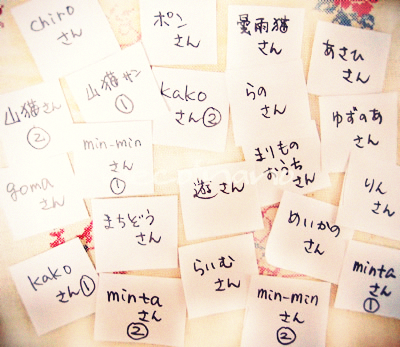 chiro
さん
ポン
さん
曇雨猫
さん
あさひ
さん
山猫さん
②
山猫サン
①
kako
さん②
らの
さん
ゆずのあ
さん
min-min
さん
①
まりもの
おうち
さん
goma
さん
遊さん
りん
さん
まちぞう
さん
めいかの
さん
kako
さん①
らいむ
さん
minta
さん
①
minta
さん
②
min-min
さん
②